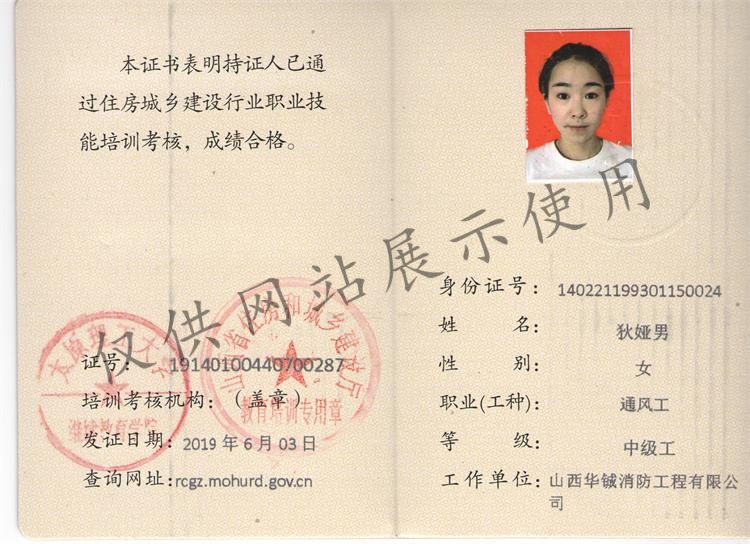 本证书表明持证人已通
过住房城乡建设行业职业技
能培训考核，成绩合格。
仅供网站展示使用
太原理工大学
继续教育学院
山西省住房和城乡建设厅
教育培训专用章
证号： 19140100440700287
培训考核机构：（盖章）
发证日期：2019 年 6 月 03 日
查询网址:rcgz.mohurd.gov.cn
身份证号：140221199301150024
姓 名： 狄娅男
性 别： 女
职业(工种)： 通风工
等 级： 中级工
工作单位：山西华铖消防工程有限公
司